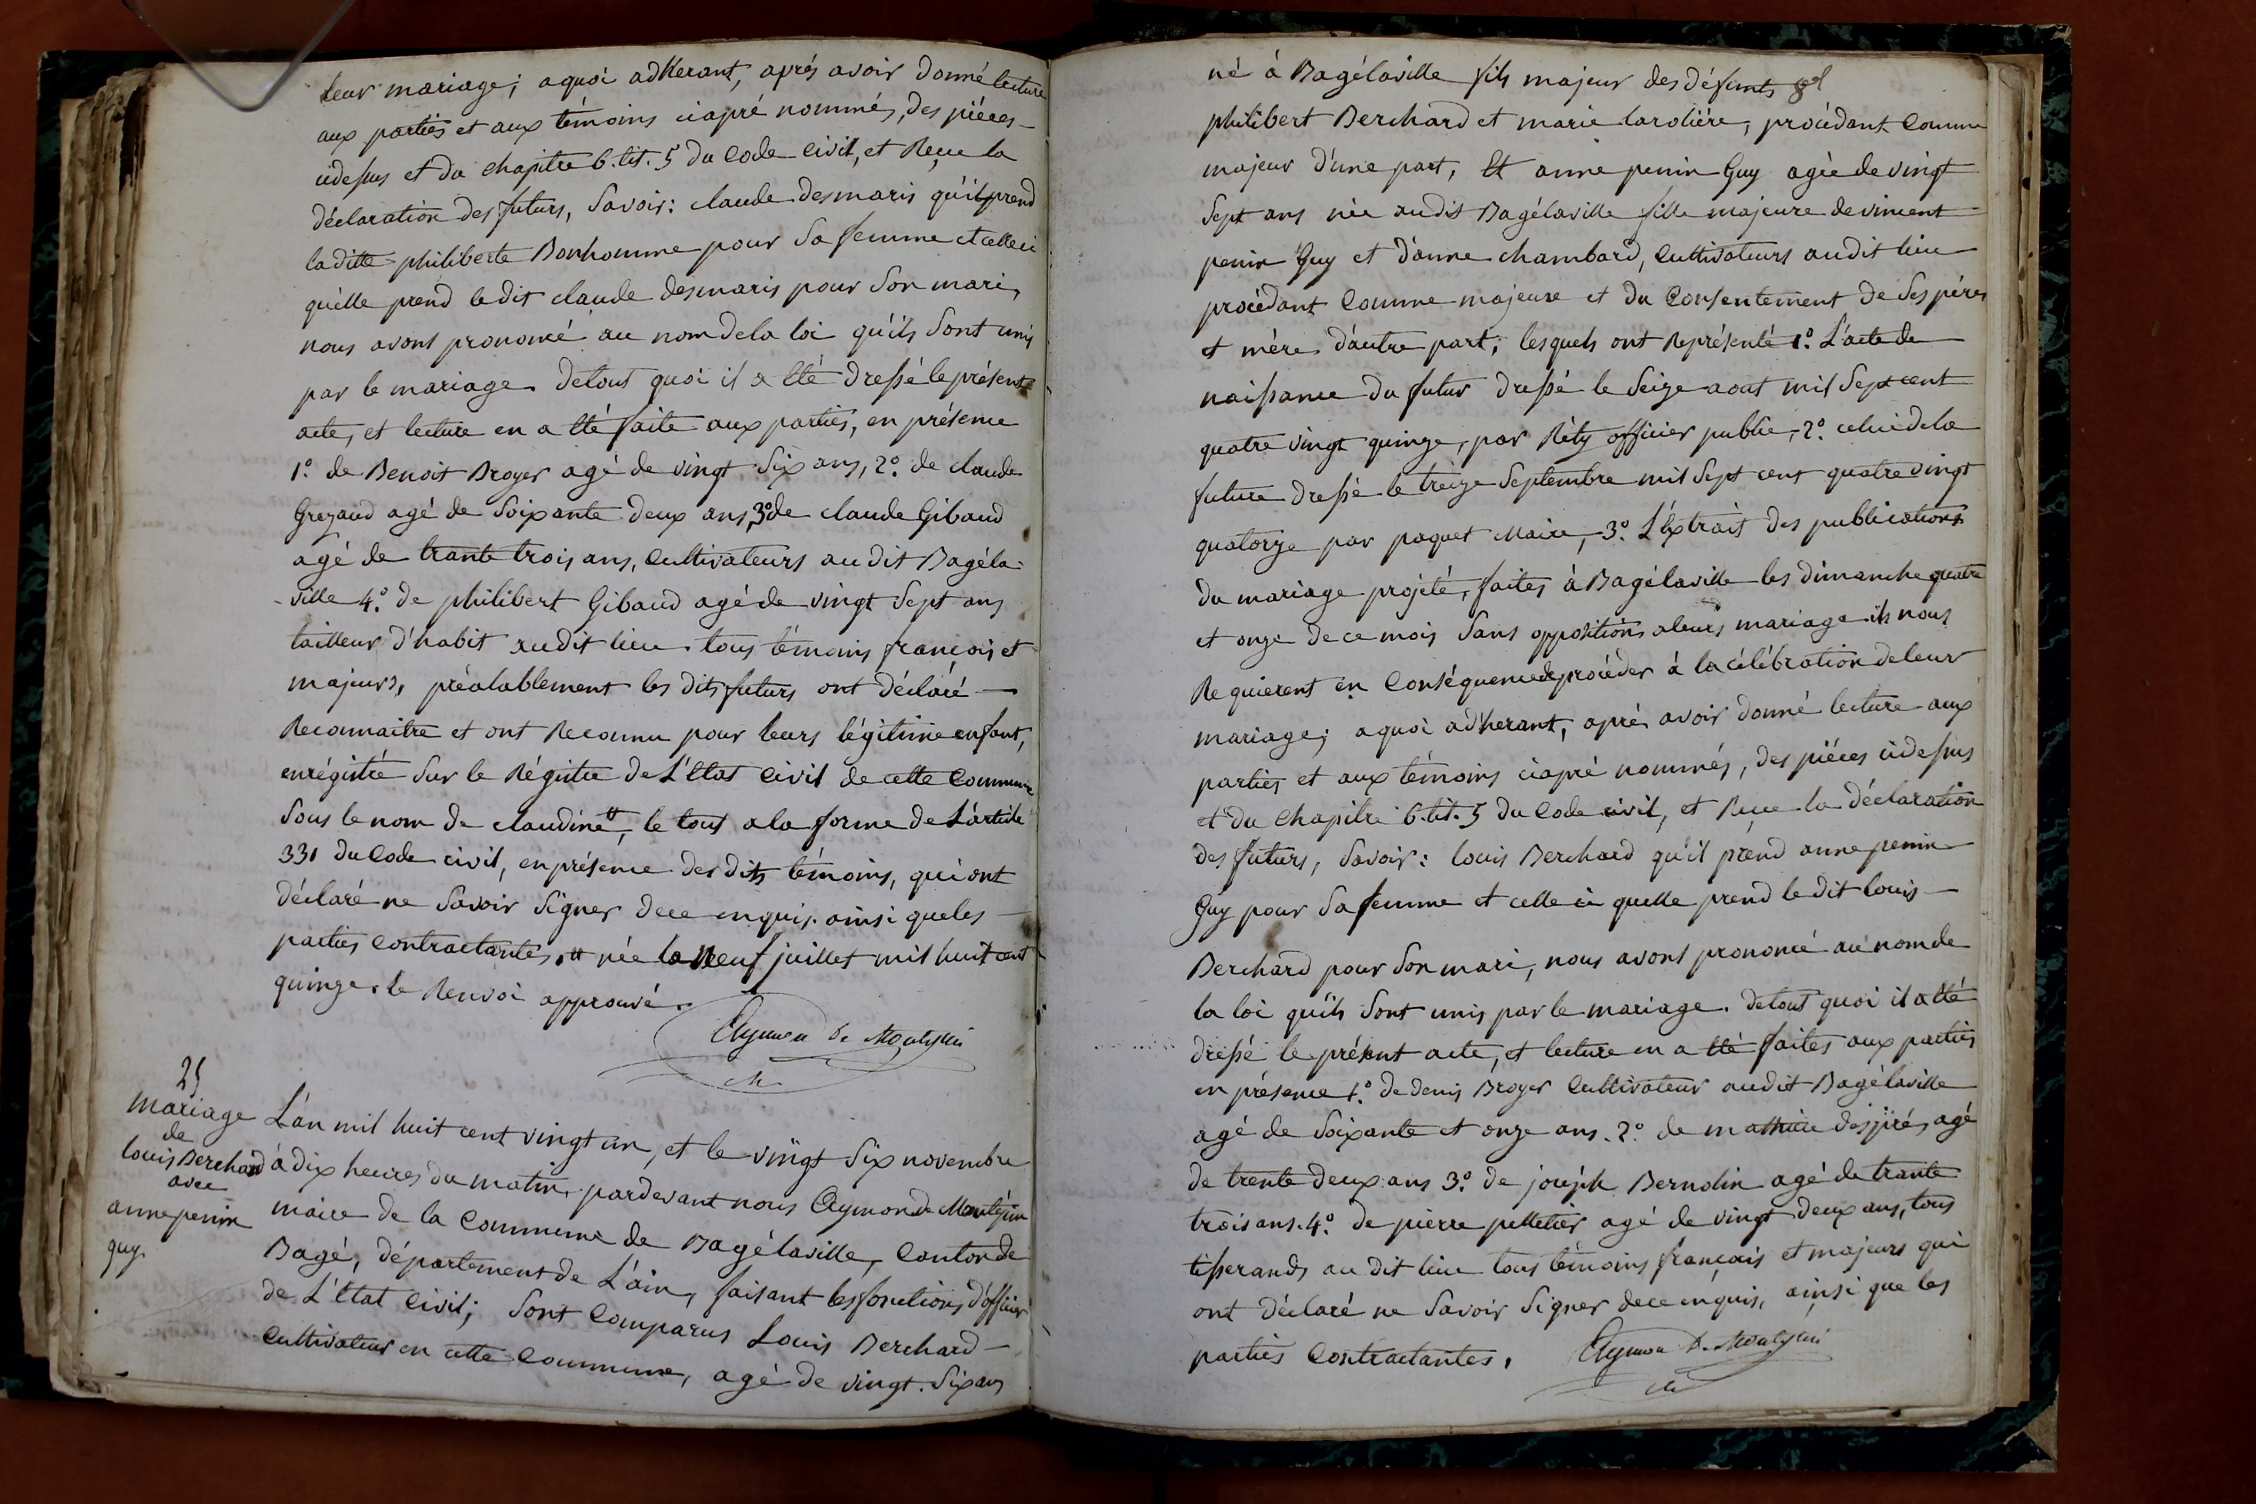 leur mariage; aquoi adherant, aprés avoir donné lecture
aux parties et aux témoins ciapré nommés, des piéces
cidessus et du chapitre 6. tit. 5 du Code Civil, et Reçue la
déclaration des futurs, Savoir: claude desmaris qu'il prend
la ditte philiberte Bonhomme pour Sa femme et celleci
quélle prend le dit claude desmaris pour Son mari,
nous avons prononcé au nom de la loi qu'ils Sont unis
par le mariage. detout quoi il a été dressé le présent
acte, et lecture en a été faite aux parties, en présence
1º. de Benoit Broyer agé de vingt Six ans, 2º. de claude
Grezaud agé de Soixante deux ans, 3º de claude Gibaud
agé de trante trois ans, Cultivateurs au dit Bagéla-
ville 4º. de philibert Gibaud agé de vingt Sept ans
tailleur d'habit au dit lieu. tous témoins françois et
majeurs, préalablement les dits futurs ont déclaré
Reconnaitre et ont Reconnu pour leurs légitime enfant,
enrégistrée Sur le Régistre de L'état Civil de cette Commune
Sous le nom de claudine #, le tout a la forme de L'article
331 du Code civil, en présence des dits témoins, qui ont
déclaré ne Savoir Signer dece enquis. ainsi queles
parties Contractantes. # née le neuf juillet mil huit cent
quinze. le Renvoi approuvé.
Aymon De Montepin
25
mariage
de
louis Berchard
avec
anne penin
guy.
L'an mil huit cent vingt un, et le vingt Six novembre
à dix heures du matin, pardevant nous Aymon de Montépin
maire de la Commune de Bagélaville, Canton de
Bagé, département de L'ain, faisant les fonctions d'officier
de L'état Civil; Sont Comparus Louis Berchard
Cultivateur en cette Commune, agé de vingt. Six ans
né à Bagélaville fils majeur des défunts
philibert Berchard et marie laroliére, procédant Comme
majeur d'une part, Et anne penin Guy agée de vingt
Sept ans née audit Bagélaville fille majeure de vincent
penin Guy et d'anne chambard, Cultivateurs audit lieu
procédant Comme majeure et du Consentement de Ses péres
et mére d'autre part; lesquels ont Représenté 1º. L'acte de
naissance du futur dressé le Seize aout mil Sept cent
quatre vingt quinze, par Réty officier public, 2º. celui dela
future dressé le treize Septembre mil Sept cent quatre vingt
quatorze par paquet Maire, 3º. L'Extrait des publications
du mariage projeté, faites à Bagélaville les dimanche quatre
et onze de ce mois Sans oppositions aleurs mariage ils nous
Requierent en Conséquence de procéder à la célébration deleur
mariage; aquoi adherant, apré avoir donné lecture aux
parties et aux témoins ciapré nommés, des piéces cidessus
et du chapitre 6. tit. 5 du Code civil, et Reçue la déclaration
des futurs, Savoir: louis Berchard qu'il prend anne penin
Guy pour Sa femme et celle ci quelle prend le dit louis
Berchard pour Son mari, nous avons prononcé au nom de
la loi qu'ils Sont unis par le mariage. detout quoi il a été
dressé le présent acte, et lecture en a été faites aux parties
en présence 1º. de denis Broyer Cultivateur audit Bagélaville
agé de Soixante et onze ans. 2º. de mathieu després agé
de trente deux ans 3º. de joséph Bernolin agé de trante
trois ans. 4º. de pierre pelletier agé de vingt deux ans, tous
tisserands au dit lieu tous témoins français et majeurs qui
ont déclaré ne Savoir Signer dece enquis, ainsi que les
parties Contractantes.
Aymon De Montepin